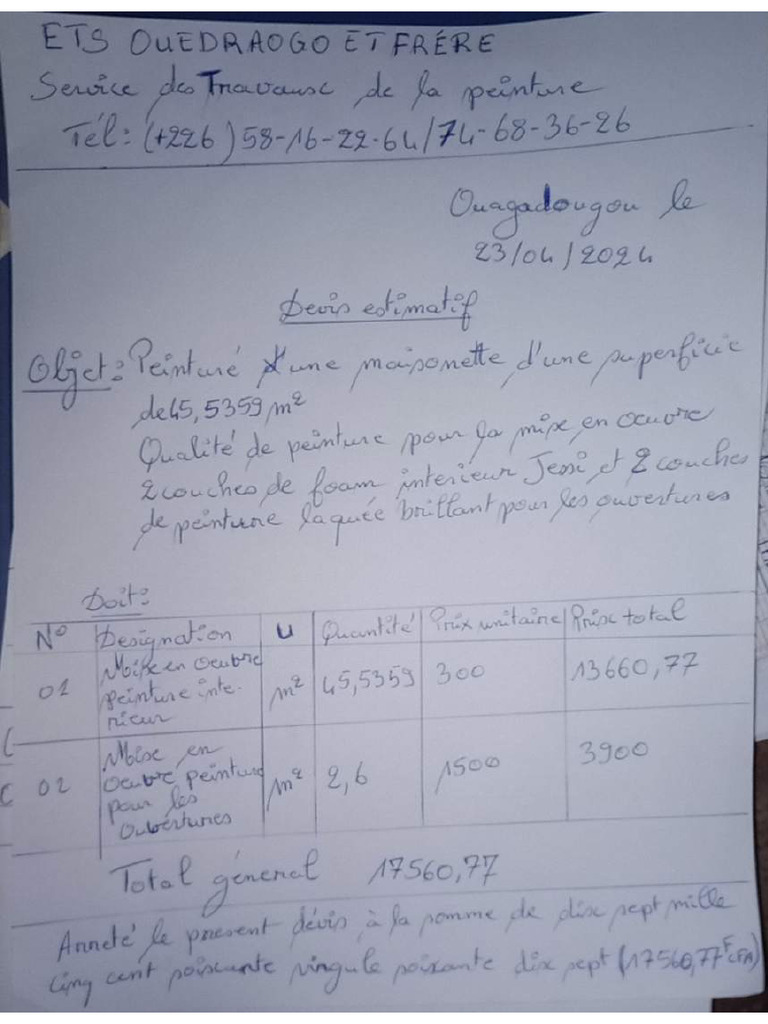 ETS OUEDRAOGO ET FRÉRE
Service des Travause de la peinture
Tél: (+226) 58-16-22-64/74-68-36-26
Ouagadougou le
23/04/2024
Devis estimatif
Objet: Peinturé d'une maisonette d'une superficie
de 45,5359 m²
Qualité de peinture pour la mise en oeuvre
2 couches de foam interieur Jessi et 2 couches
de peinture laquée brillant pour les ouvertures
Doit:
N° Designation U Quantité Prix unitaire Prix total
01 Mise en oeubre peinture inte-rieur m² 45,5359 300 13660,77
02 Mise en oeubre peinture pour les ouvertures m² 2,6 1500 3900
Total géneral 17560,77
Arreté le present dévis à la somme de dix sept mille
cinq cent soiscante virgule soixante dix sept (17560,77 F CFA)